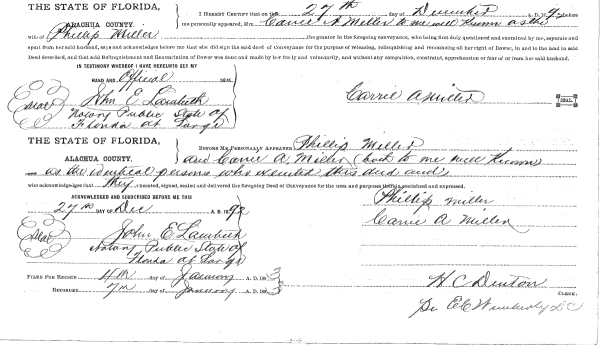 THE STATE OF FLORIDA,
ALACHUA COUNTY.
I HEREBY CERTIFY That on this 27th day of December A. D. 189
me personally appeared, Mrs. Carrie A Miller to me well known as the
wife of Phillip Miller the grantor in the foregoing conveyance, who being first duly questioned and examined by me, separate and
apart from her said husband, says and acknowledges before me that she did sign the said deed of Conveyance for the purpose of releasing, relinquishing and renouncing all her right of Dower, in and to the land in said
Deed described, and that said Relinquishment and Renunciation of Dower was done and made by her freely and voluntarily, and without any compulsion, constraint, apprehension or fear of or from her said husband.
IN TESTIMONY WHEREOF I HAVE HEREUNTO SET MY
HAND AND Official SEAL
Seal John E Lambeth
Notary Public State of
Florida at Large
Carrie A Miller SEAL.
THE STATE OF FLORIDA,
ALACHUA COUNTY.
BEFORE ME PERSONALLY APPEARED Phillip Miller
and Carrie A. Miller (both to me well known
as the persons who executed this deed and
who acknowledges that they executed, signed, sealed and delivered the foregoing Deed of Conveyance for the uses and purposes therein contained and expressed.
ACKNOWLEDGED AND SUBSCRIBED BEFORE ME THIS
27th DAY OF Dec A. D. 1892
Phillip Miller
Carrie A Miller
Seal John E Lambeth
Notary Public State of
Florida at Large
FILED FOR RECORD 4th day of January A. D. 1893
RECORDED 7th day of January A. D. 1893
H C Denton CLERK.
E C Wimberly DC